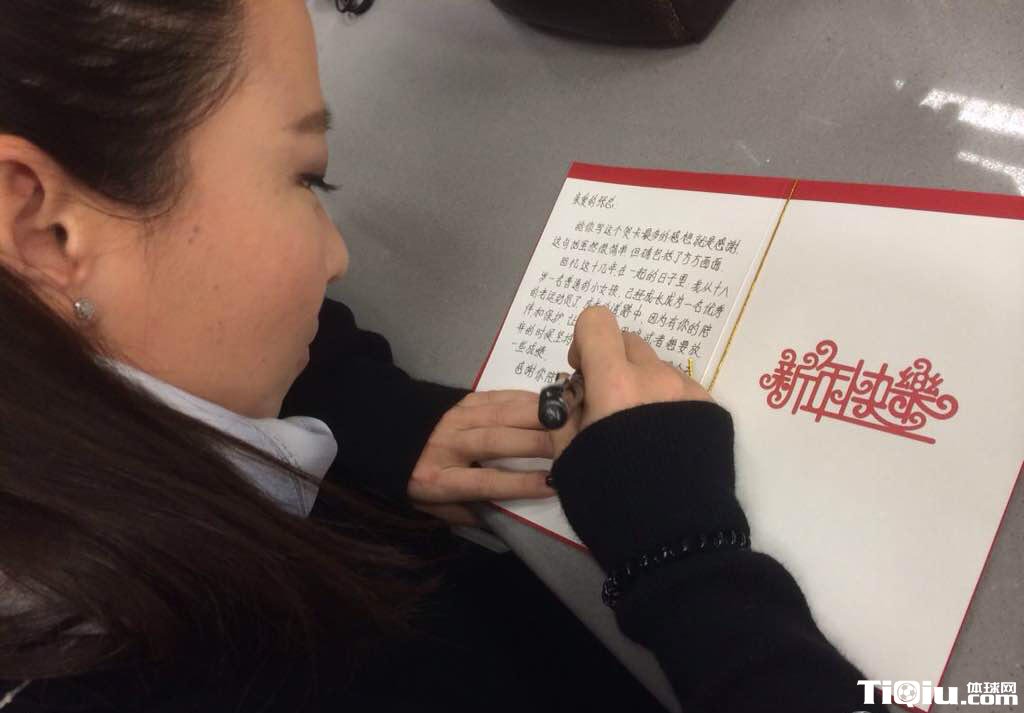 亲爱的
给你写这个贺卡最多的感想就是感谢.
这句话虽然很简单,但确包括了方方面面
回礼这十几年在一起的日子里,我从十八
岁一名普通的小女孩,已经成长成为一名优秀
的老运动员了,成长的道路中,因为有你的陪
伴和保护,让
的时候坚持 或者想要放
一些成绩
感谢你陪
新年快樂
TiQiu 体球网
.com